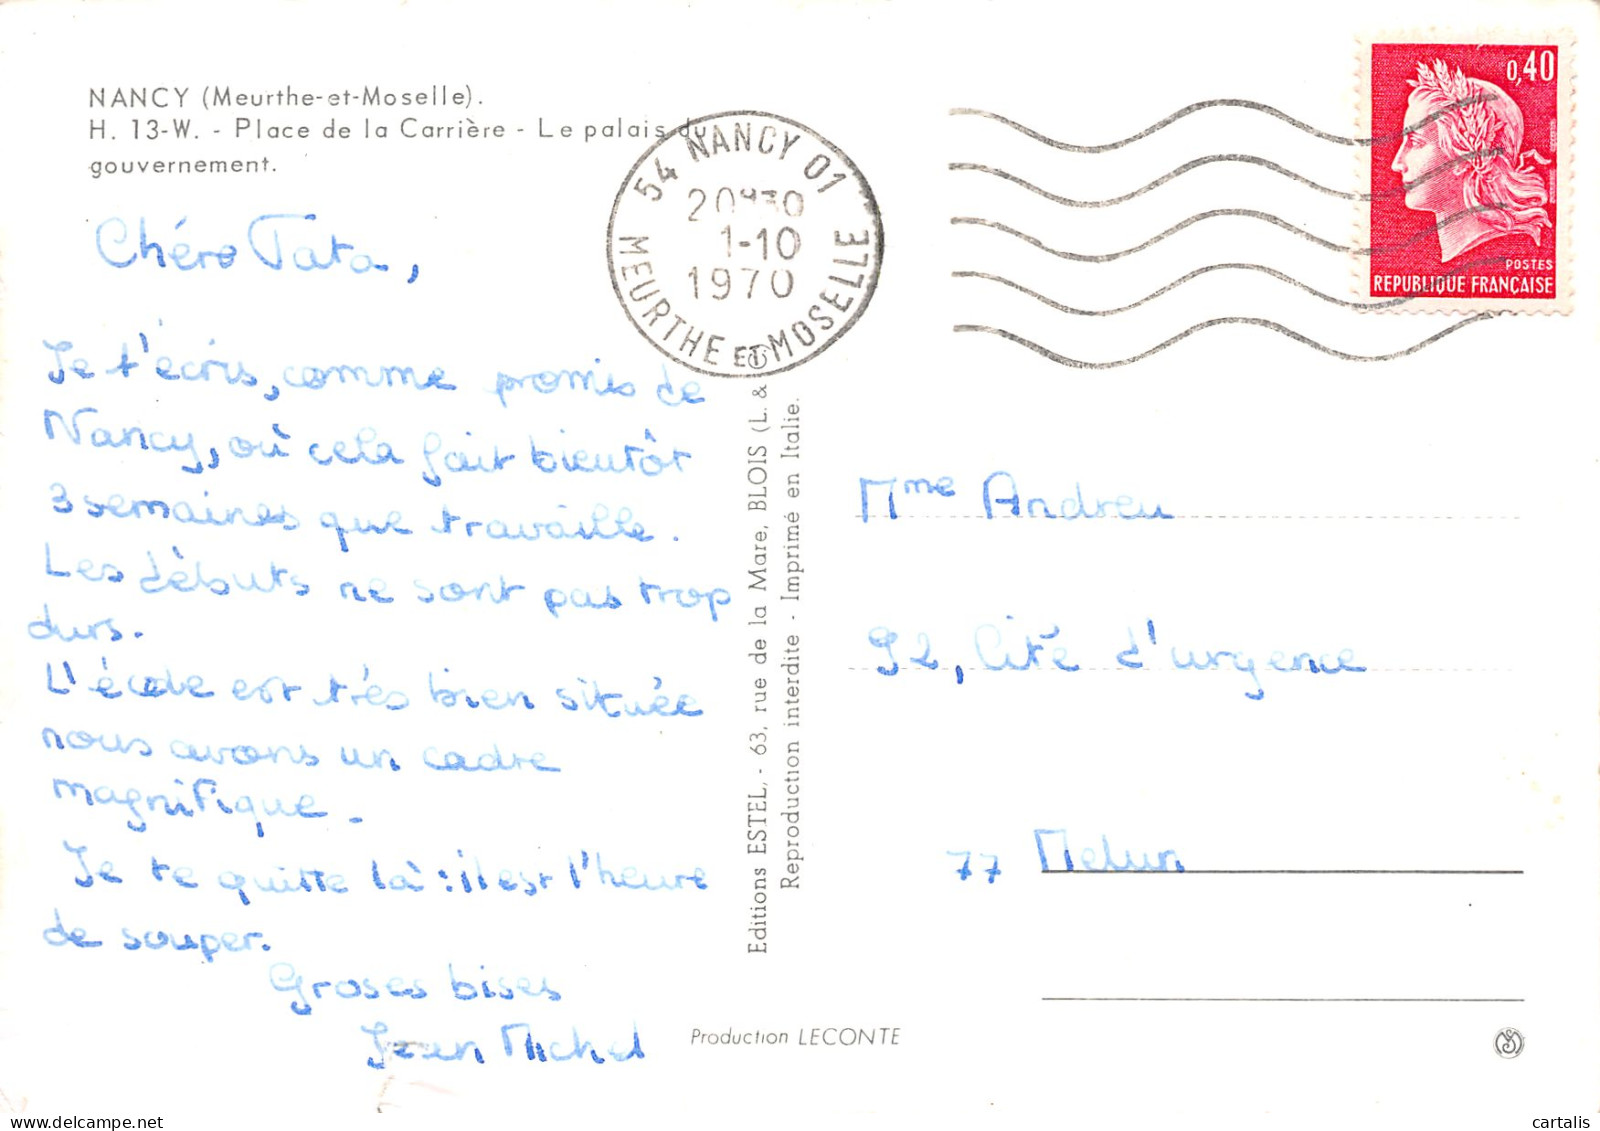 NANCY (Meurthe-et-Moselle).
H. 13-W. - Place de la Carrière - Le palais du
gouvernement.
54 NANCY 01
20H30
1-10
1970
MEURTHE ET MOSELLE
0,40
POSTES
REPUBLIQUE FRANÇAISE
Chére Tata,
Je t'écris, comme promis de
Nancy, où cela fait bientôt
3 semaines que travaille.
Les débuts ne sont pas trop
durs.
L'école est très bien située
nous avons un cadre
magnifique.
Je te quitte là : il est l'heure
de souper.
Groses bises
Jean Michel
Editions ESTEL, - 63, rue de la Mare, BLOIS (L. &
Reproduction interdite - Imprimé en Italie.
Mme Andreu
92, Cité d'urgence
77 Melun
Production LECONTE
cartalis